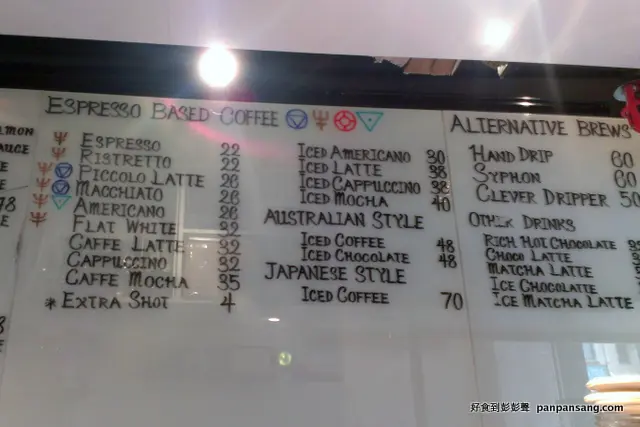 ESPRESSO BASED COFFEE
ESPRESSO 22
RISTRETTO 22
PICCOLO LATTE 26
MACCHIATO 26
AMERICANO 26
FLAT WHITE 32
CAFFE LATTE 32
CAPPUCCINO 32
CAFFE MOCHA 35
* EXTRA SHOT 4
ICED AMERICANO 30
ICED LATTE 38
ICED CAPPUCCINO 38
ICED MOCHA 40
AUSTRALIAN STYLE
ICED COFFEE 48
ICED CHOCOLATE 48
JAPANESE STYLE
ICED COFFEE 70
ALTERNATIVE BREWS
HAND DRIP 60
SYPHON 60
CLEVER DRIPPER 50
OTHER DRINKS
RICH HOT CHOCOLATE
CHOCO LATTE
MATCHA LATTE
ICE CHOCOLATE
ICE MATCHA LATTE
好食到彭彭聲 panpansang.com